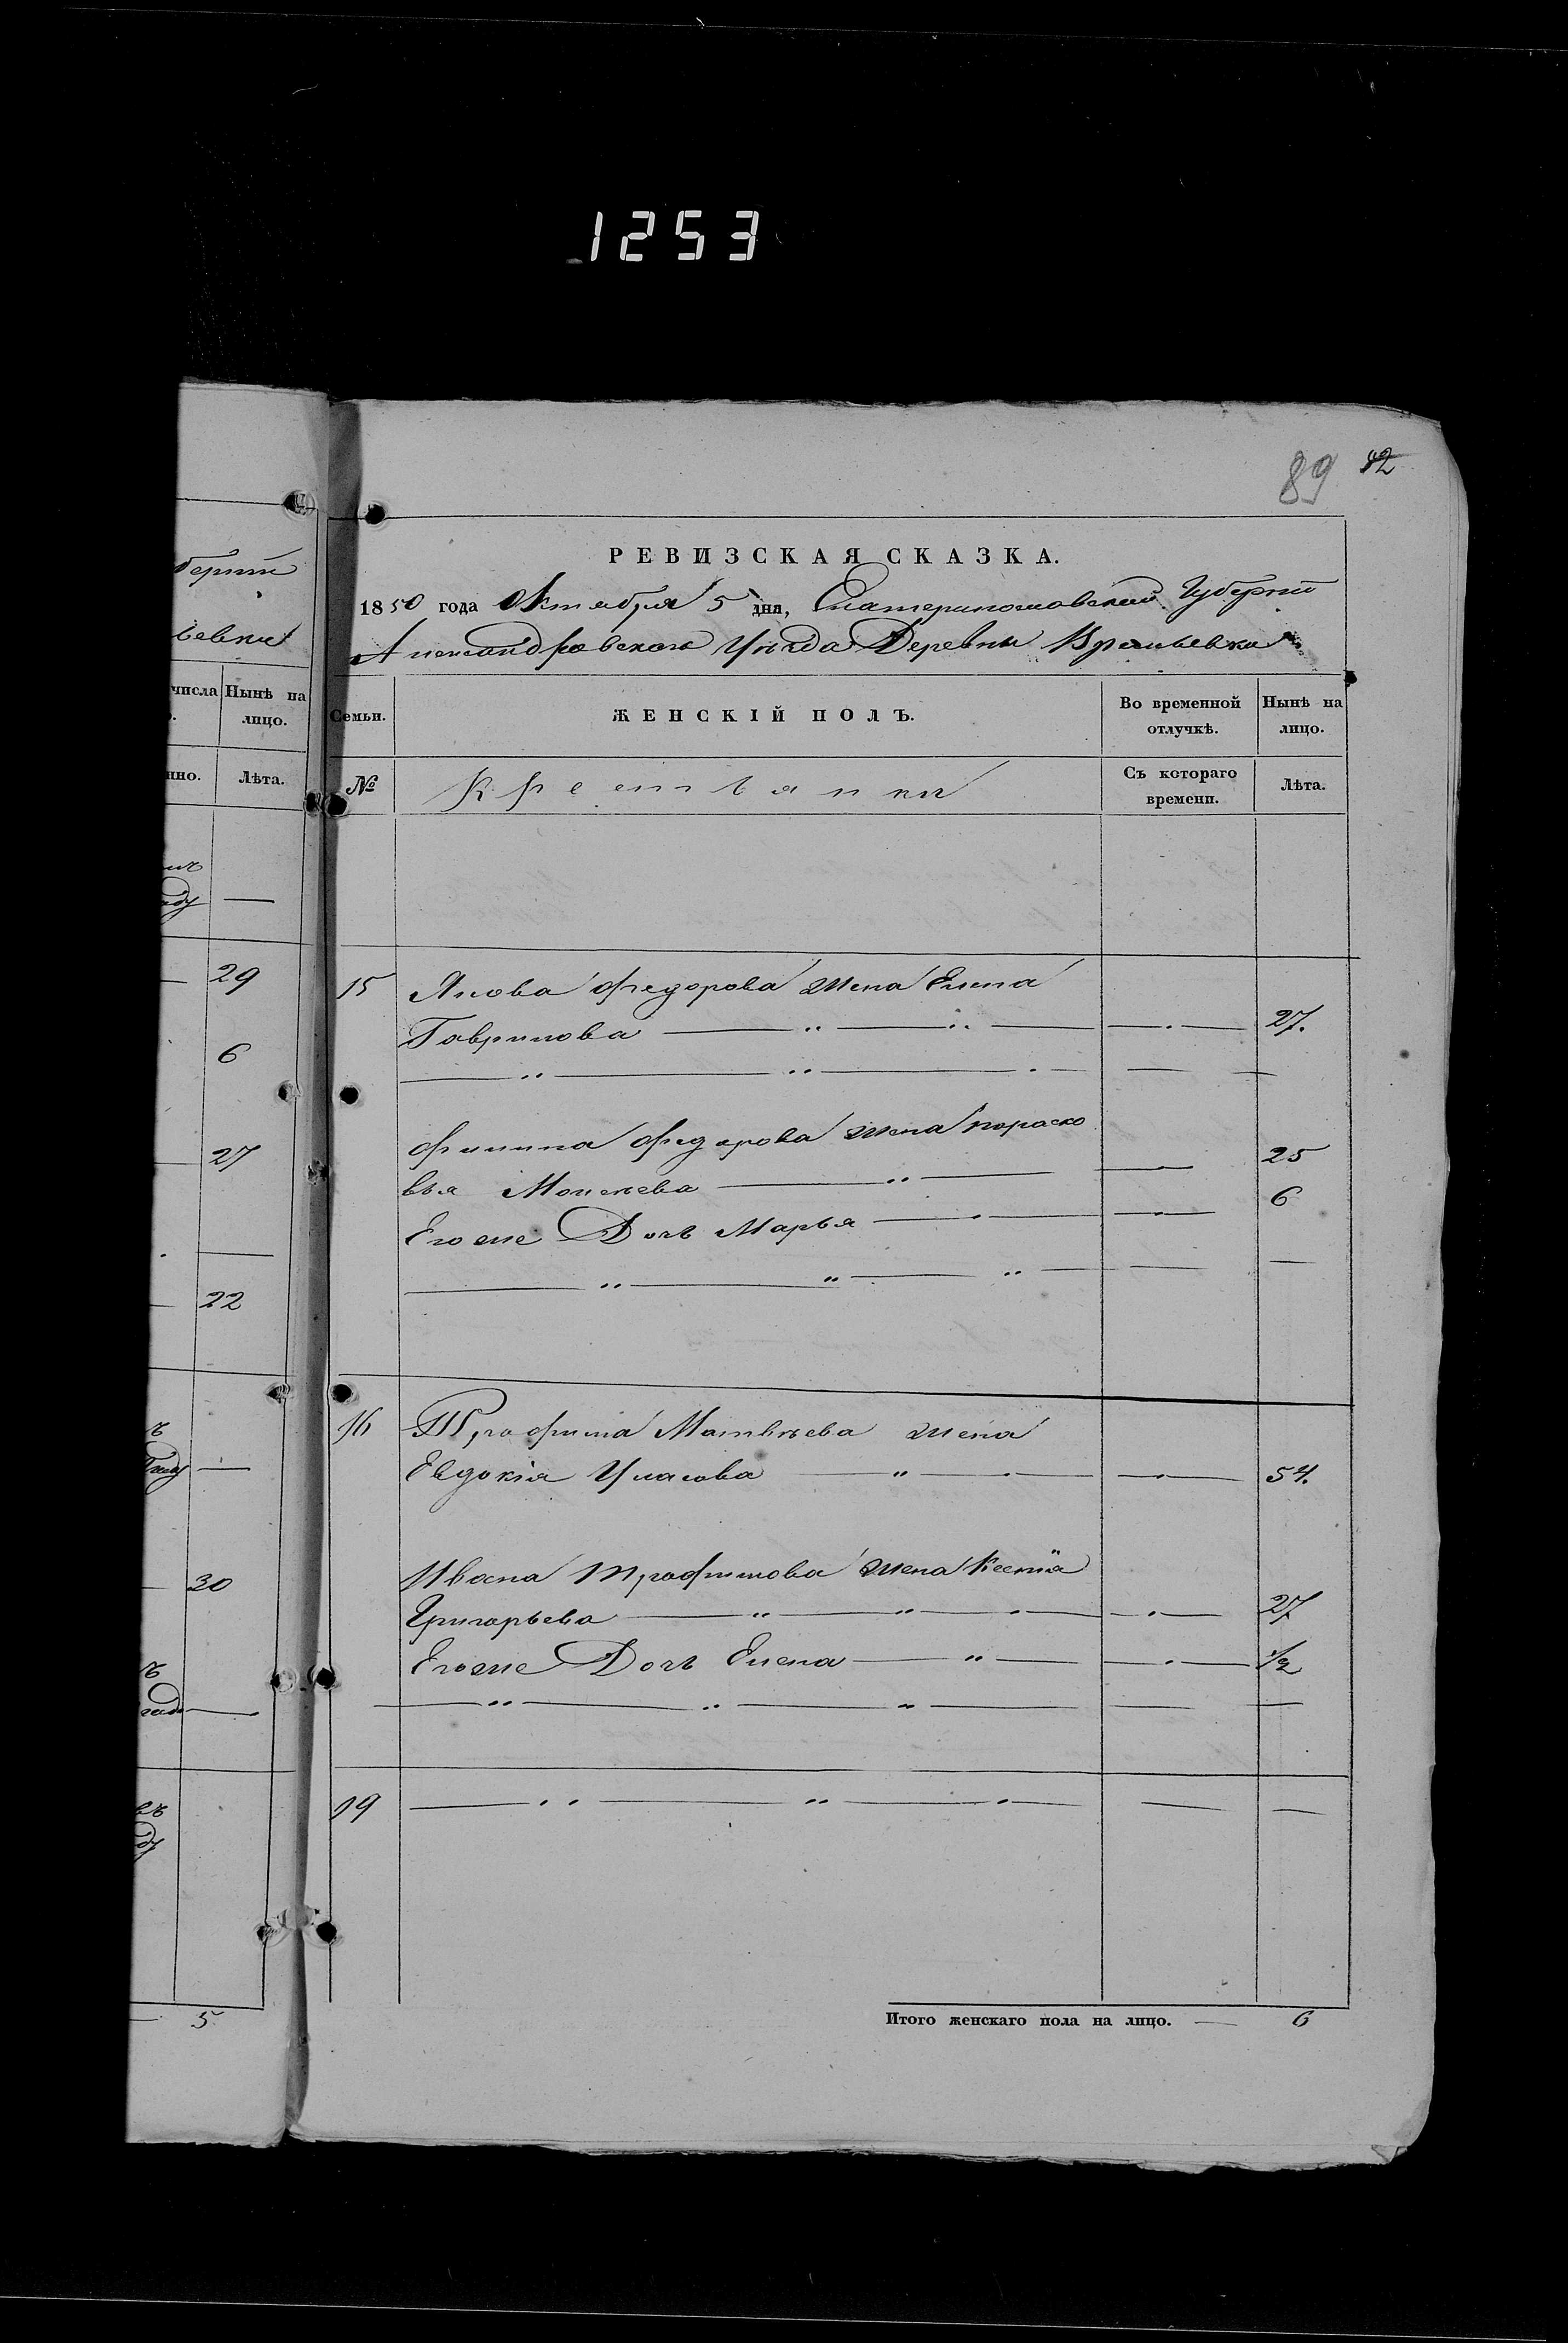 1253
89 42
РЕВИЗСКАЯ СКАЗКА.
1850 года Октября 5 дня, Екатеринославской Губернии
Александровского Уѣзда Деревни
Семьи. ЖЕНСКІЙ ПОЛЪ. Во временной отлучкѣ. Нынѣ на лицо.
№ Крестьянки Съ котораго времени. Лѣта.
15 Якова Федорова жена Елена
Гаврилова 27.
Филипа Федорова жена Параско
вья Моисеева 25
Егоже Дочь Марья 6
16 Трофима Матвѣева жена
Евдокія Уласова 54.
Ивана Трофимова жена Ксенія
Григорьева 27
Егоже Дочь Елена 1/2
19
Итого женскаго пола на лицо. 6
числа Нынѣ на
лицо.
Лѣта.
29
6
27
22
30
5